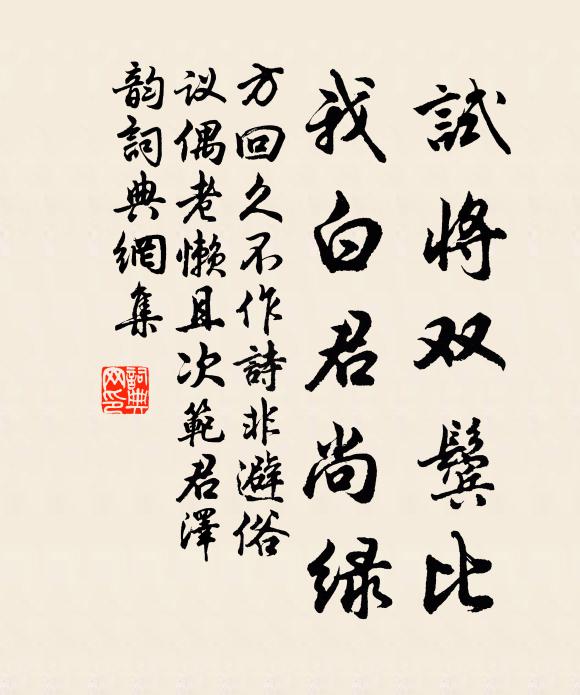 試将双鬓比
我白君尚緑
方回久不作詩非避俗
议偶老懒且次範君澤
韵詞典網集
詞典网印